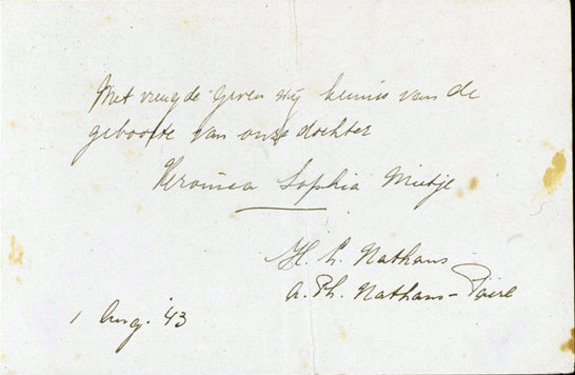 Met vreugde geven wij kennis van de
geboorte van onze dochter
Veronica Sophia Mietje
H. L. Nathans
A. Ph. Nathans-
1 Aug. '43